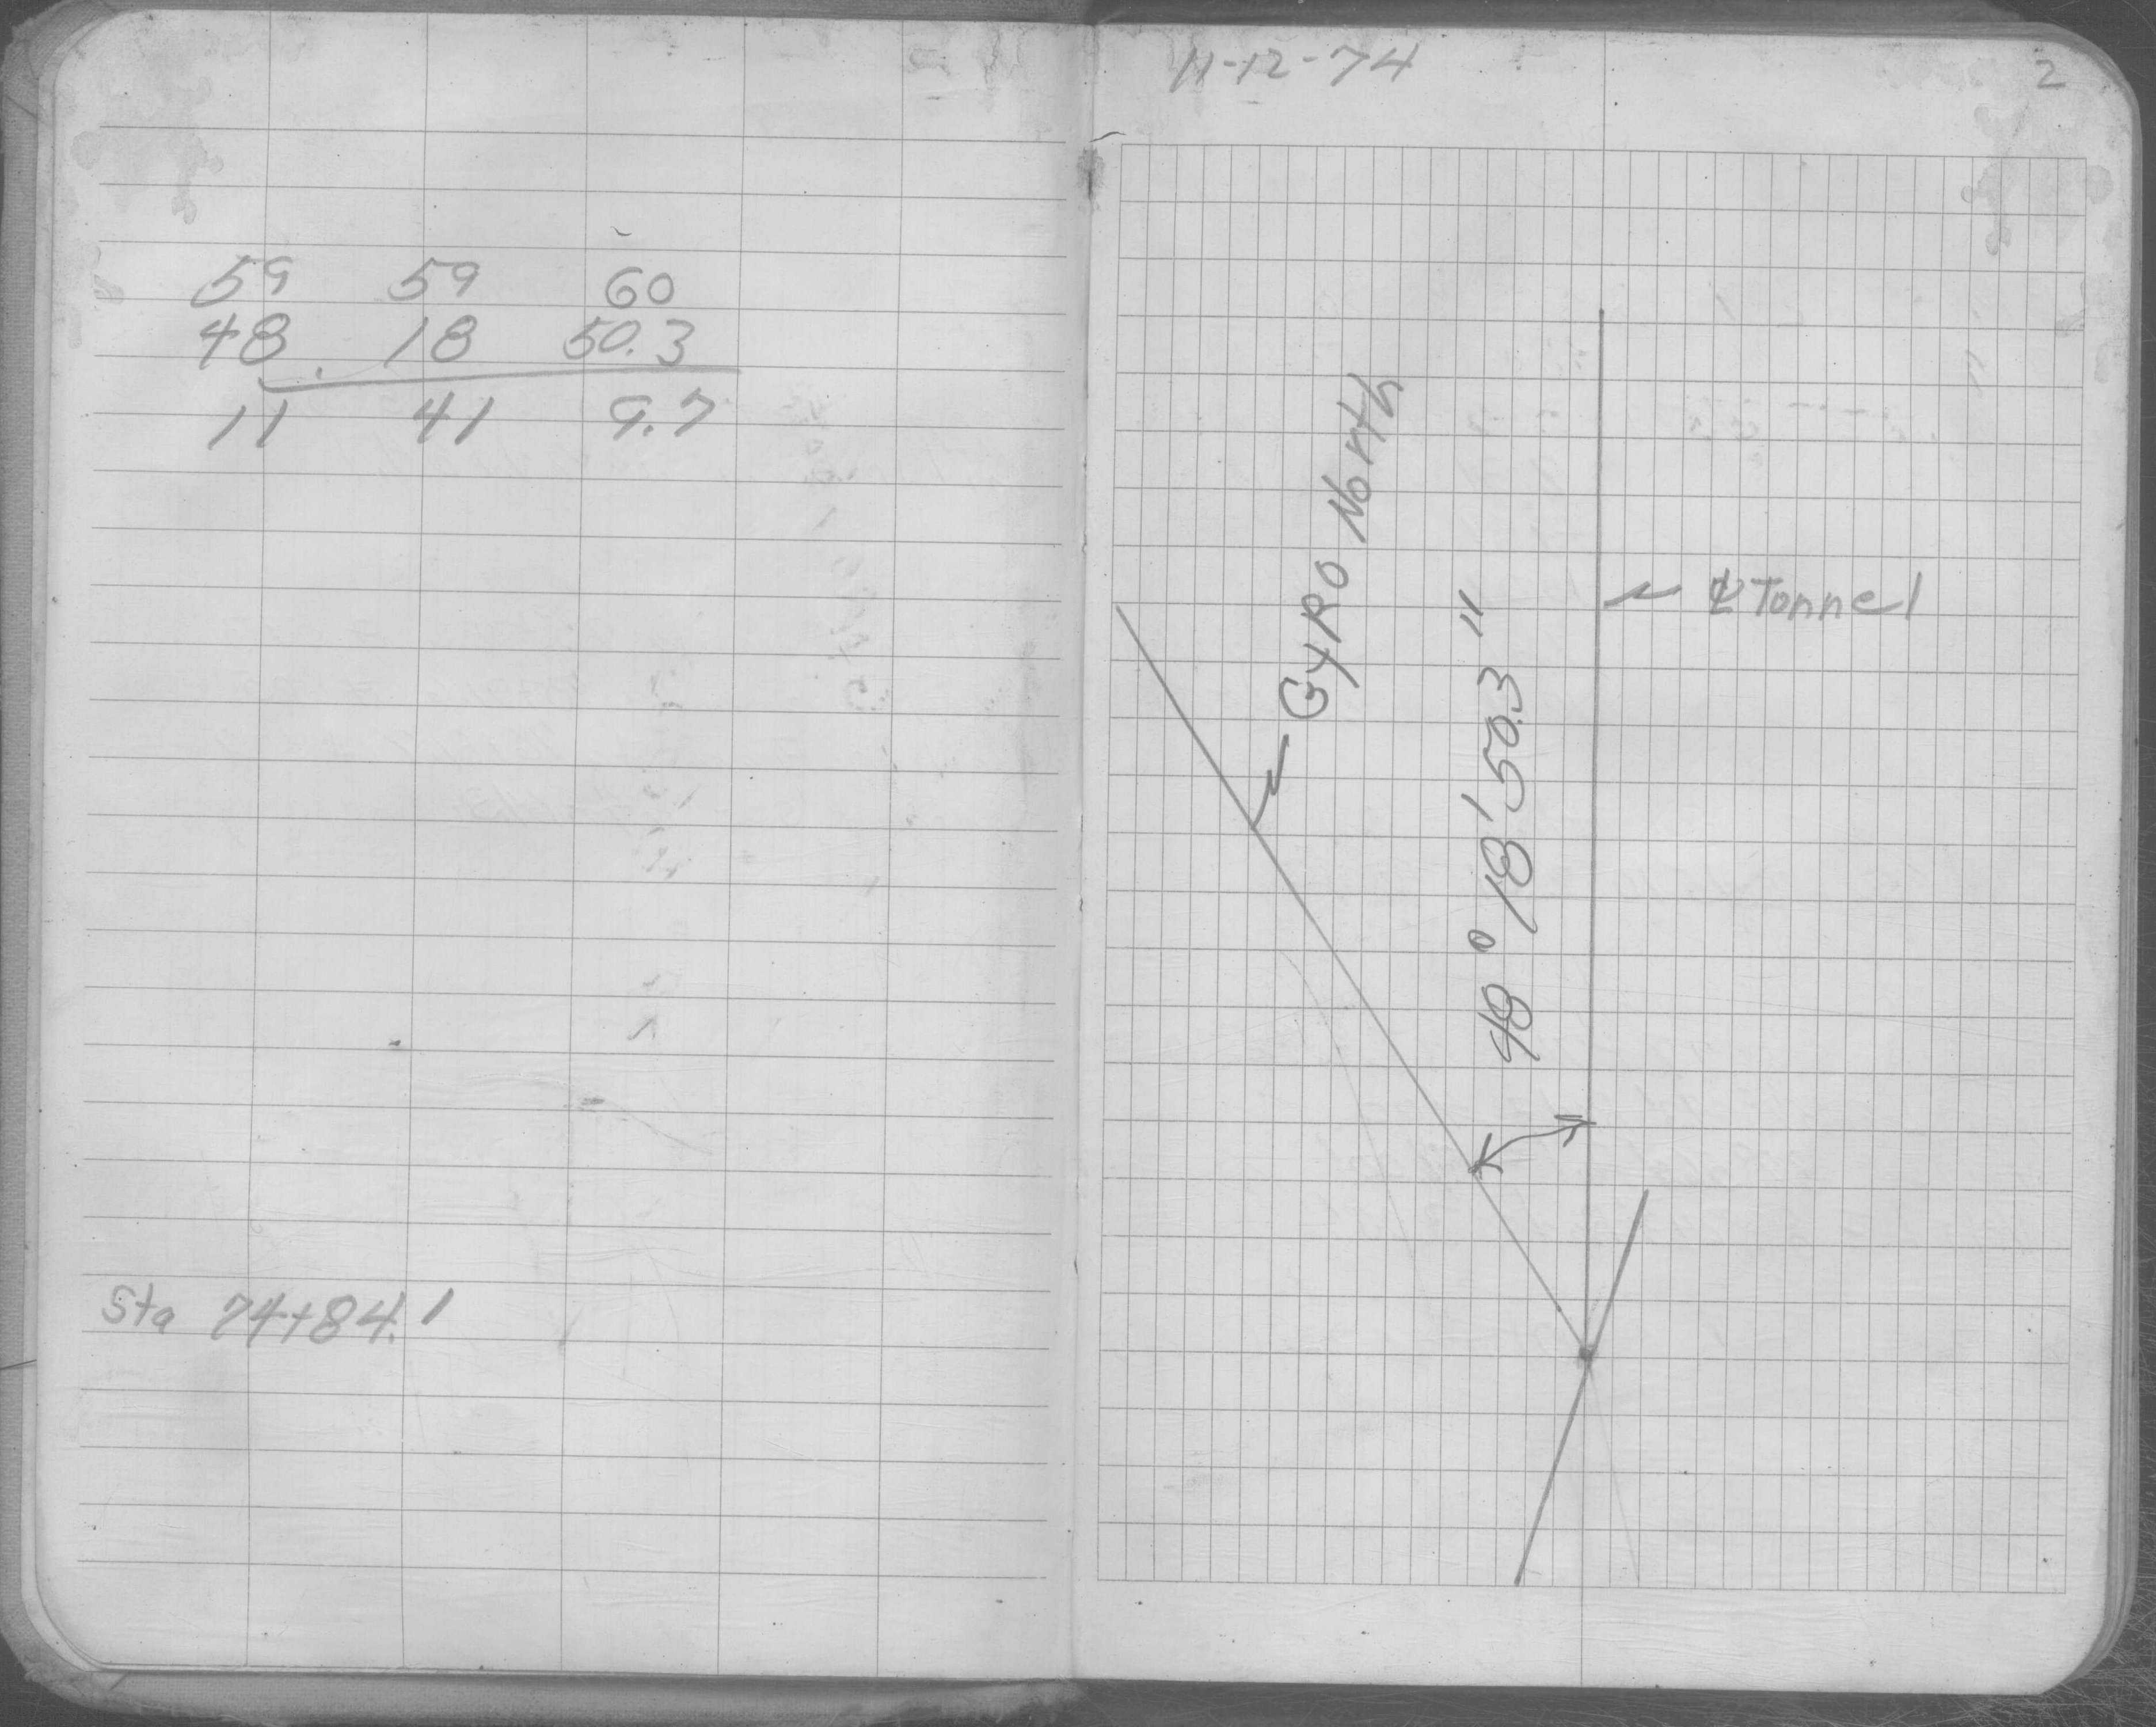 59 59 60
48 18 50.3
11 41 9.7
Sta 74+84.1
11-12-74
2
GYRO North
48° 18' 50.3"
℄ Tonnel